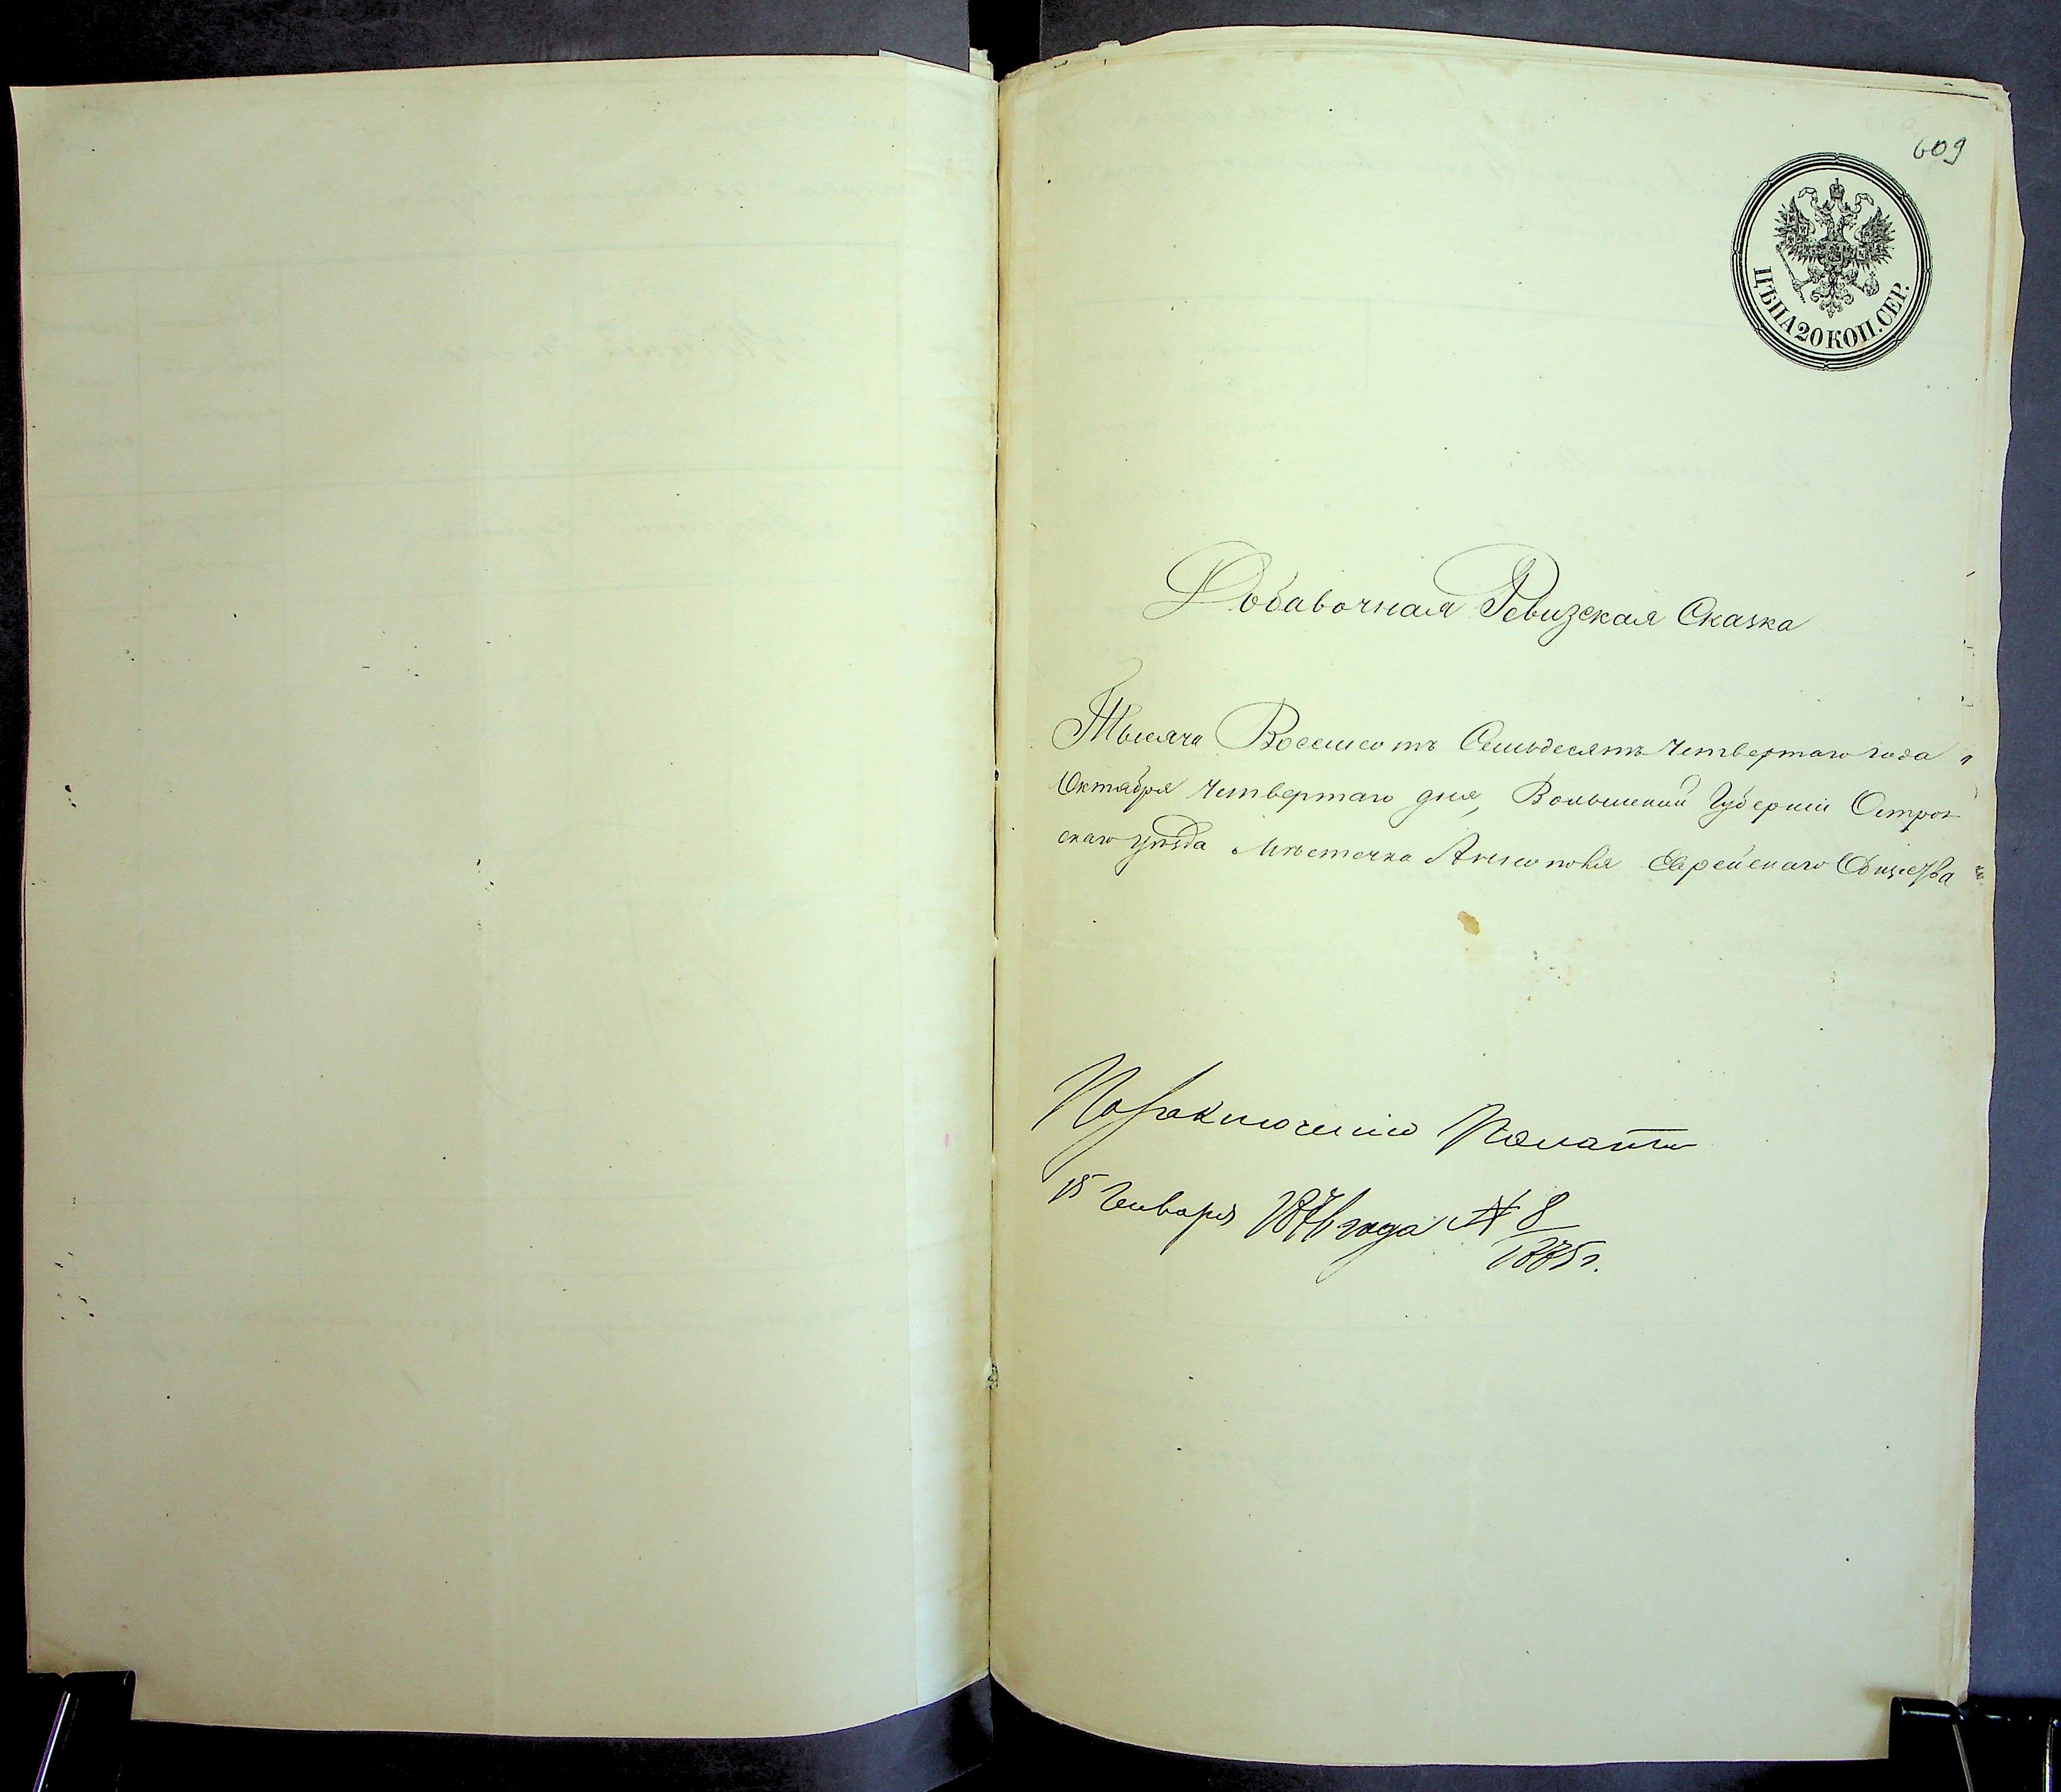 609
ЦѢНА 20 КОП. СЕР.
Добавочная Ревизская Сказка
Тысяча Восемсотъ Семьдесятъ Четвертаго года
Октября Четвертаго дня, Волынской Губерніи Острож
скаго уѣзда Мѣстечка Аннополя Еврейскаго Общества
По заключенію Палаты
15 Января 1876 года № 8
1875 г.